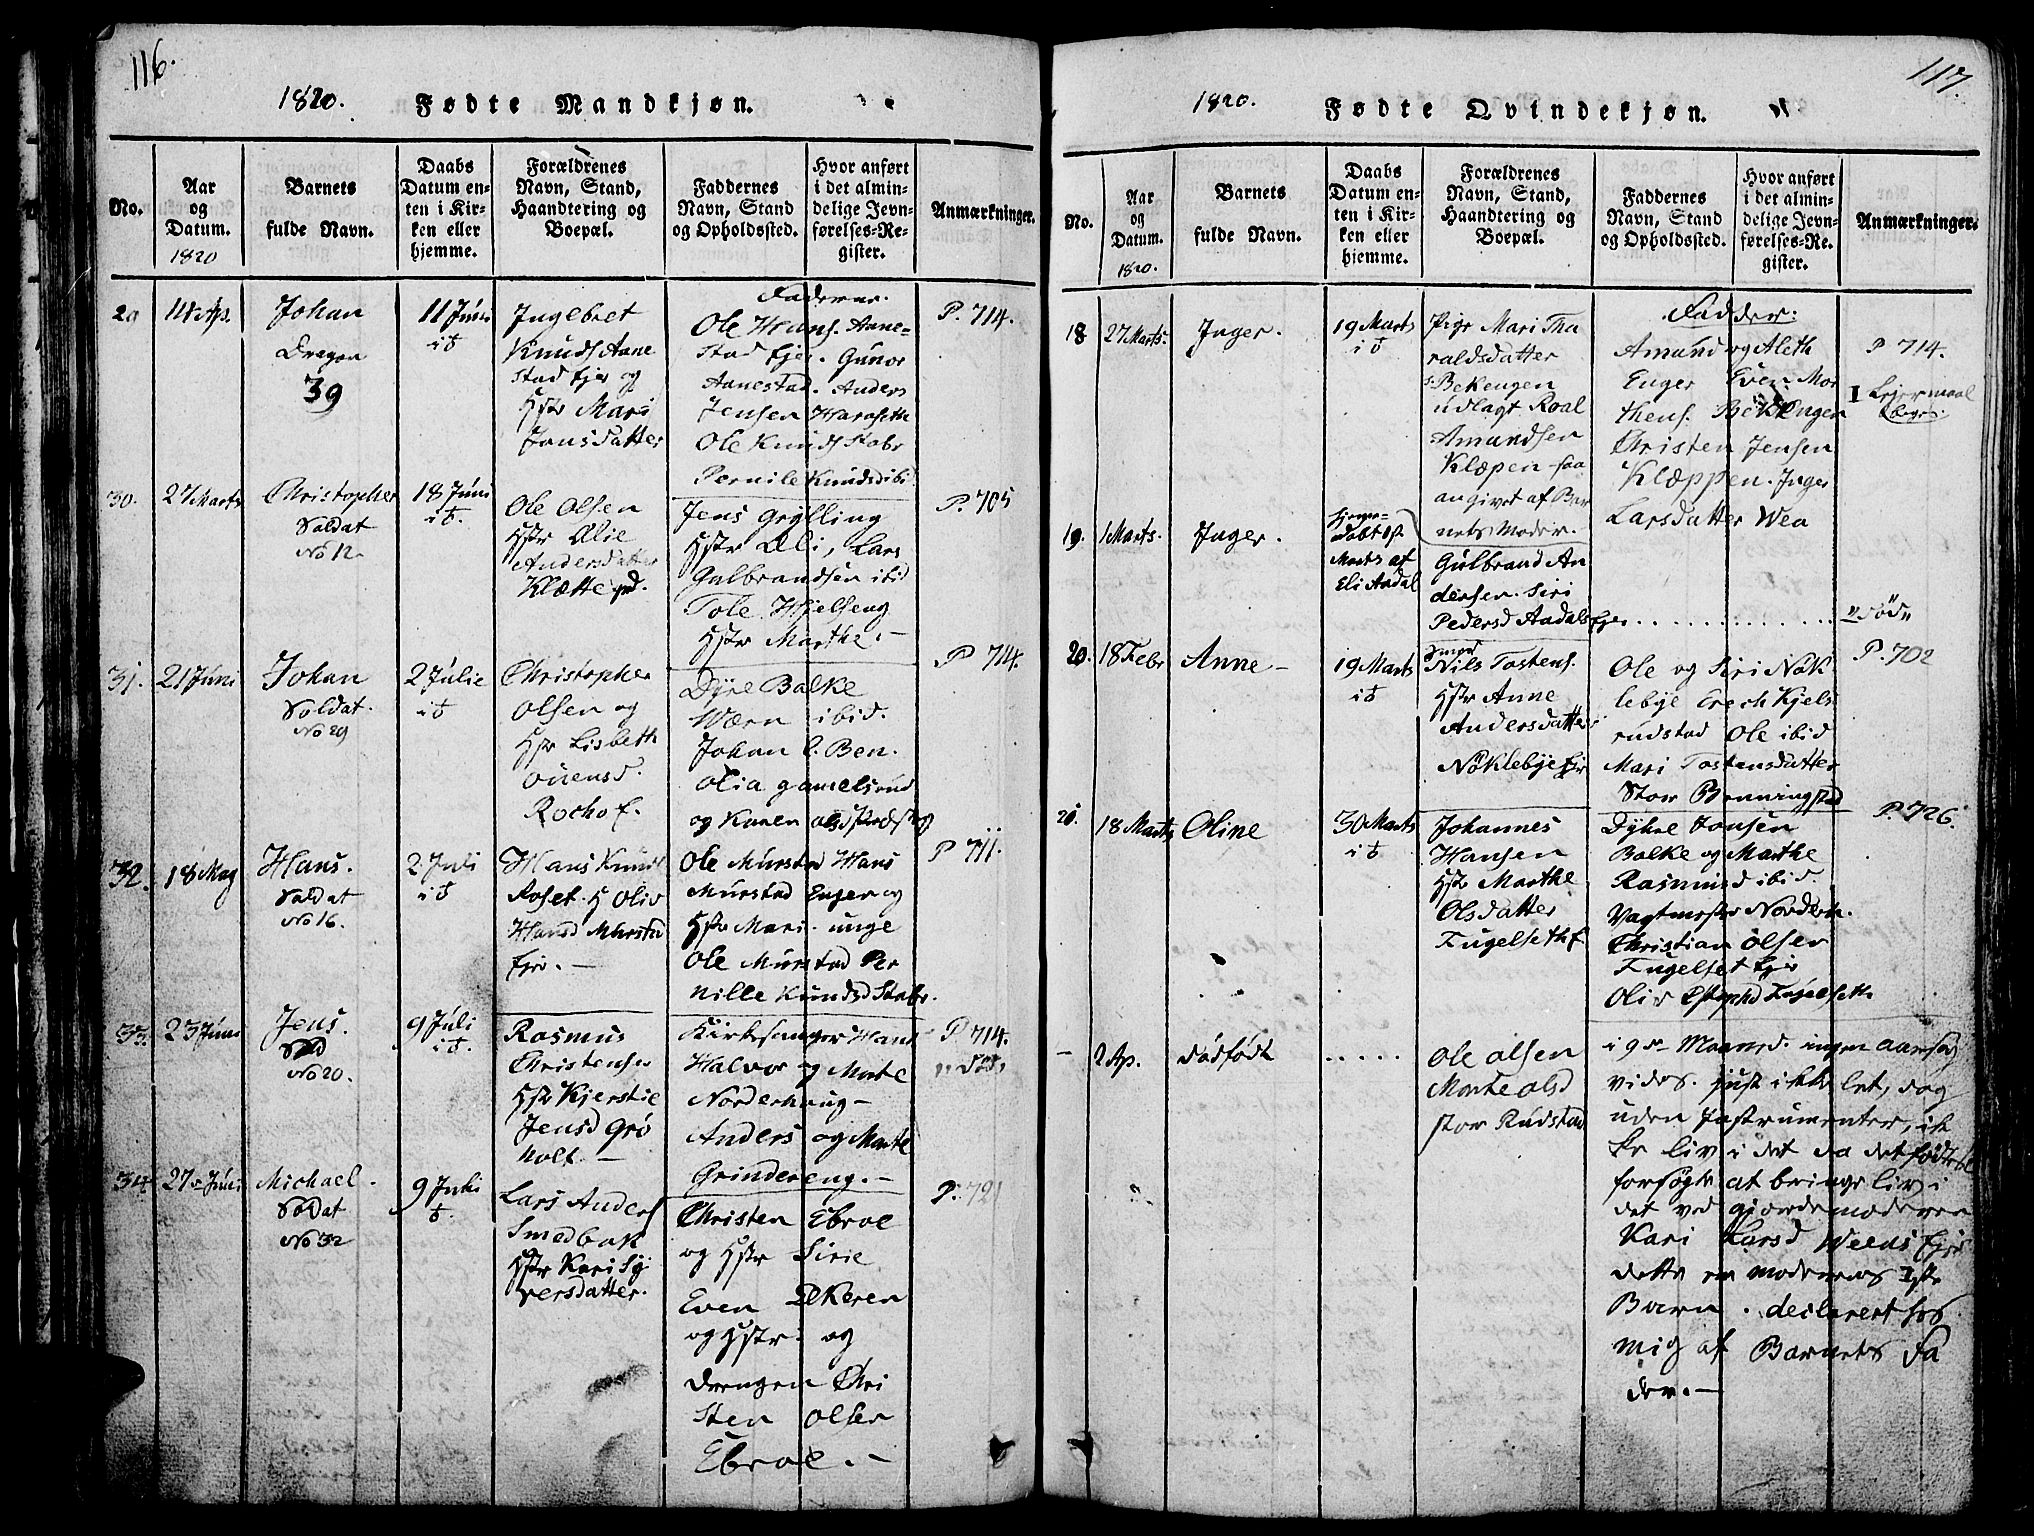 116.
1820. Fødte Mandkjøn.
No.
Aar
og
Datum.
1820
Barnets
fulde Navn.
Daabs
Datum en-
ten i Kir-
ken eller
hjemme.
Forældrenes
Navn, Stand,
Haandtering og
Boepæl.
Faddernes
Navn, Stand
og Opholdssted.
Hvor anført
i det almin-
delige Jevn-
førelses-Re-
gister.
Anmærkninger.
29
11 Ap.
Johan
Dragon
39
11 Júni
i K
Ingebret
Knuds Anne
stad Ejer og
Hstr Mari
Jonsdatter
Fadderne.
Ole Hans. Anne-
stad Ejer. Gunor
Annestad. Anders
Jensen Haraseth
Ole Knuds Stabr
Pernile Knudsd ibid
P. 714.
30.
27 Marts
Christopher
Soldat
No 12.
18 Júni
Ole Olsen
Hstr Olie
Andersdatter
Klætte
Jens Grylling
Hstr Oli, Lars
Gulbrandsen ibid
Tole Hielseng
Hstr Marthe. –
P. 705
31.
21 Júni
Johan
Soldat.
No 29
2 Júlie
Christopher
Olsen og
Hstr Lisbeth
Ovensd.
Rocho E.
Dyre Balke
Wærn ibid.
Johan l. Ben.
Olia gamelsrud
og Karen
P. 714.
32.
18 May
Hans.
Soldat
No 16.
2 Juli
Hans Knuds
Roset. H Oliv
Hansd Murstad
Ejer. –
Ole Murstad Hans
Murstad Enger og
Hstr Mari. unge
Ole Murstad Per
nille Knudsd Stabr.
P 711.
33.
23 Júni
Jens.
Sold
No 20.
9 Júli
Rasmus
Christensen
Hstr Kjerstie
Jensd Grø
holt. –
Kirkesanger Hans
Halvor og Marte
Norderhoug –
Anders og Marte
Grindereng. –
P. 714.
død.
34
27 Júni
Michael.
Soldat
No 32
9 Juli
Lars Anders
Smedbak
Hstr Kari Sy
versdatter.
Christen Ebroe
og Hstr Sirie
Even Ekeren
og Hstr. og
drengen Chri
sten Olsen
Ebroe. –
P. 721
117.
1820. Fødte Qvindekjøn.
No.
Aar
og
Datum.
1820.
Barnets
fulde Navn.
Daabs
Datum en-
ten i Kir-
ken eller
hjemme.
Forældrenes
Navn, Stand,
Haandtering og
Boepæl.
Faddernes
Navn, Stand
og Opholdssted.
Hvor anført
i det almin-
delige Jevn-
førelses-Re-
gister.
Anmærkninger.
18
27 Marts.
Inger.
19 Marts
Pige Mari Tha
raldsdatter
Bekengen
udlagt Roal
Amundsen
Klæpen saa
angivet af Bar
nets Moder.
Fadder:
Amund og Aleth
Enger Even Mor
thens. Bekkengen
Christen Jensen
Klæppen. Inger
Larsdatter Wea
P 714.
1 Lejermaal
19.
1 Marts.
Inger.
hjemme-
døbt
Marts af
Eli Aadal
Gulbrand An
dersen. Siri
Pedersd Aadals Ejer
„død„
20.
18 Febr
Anne –
19 Marts
Nils Tostens.
Hstr Anne
Andersdatter
Nøklebye Ejer
Ole og Siri Nøk
lebye Erech Kjels
rudstad Ole ibid
Mari Tostensdatter
Stor Benningstad
P. 702
21.
18 Marts
Oline
30 Marts
Johannes
Hansen
Hstr Marthe
Olsdatter
Fugelseth E.
Dyhre Jonsen
Balke og Marthe
Rasmusd ibid.
Vagtmester Norderh.
Christian Olsen
Fugelset Ejer
Oliv Fugelseth
P. 726.
–
2 Ap.
dødfødt
.....
Ole Olsen
Marte Olsd
stor Rudstad
i 9de Maaned. ingen aarsag
vides. just ikke let, dog
uden Instrumenter, ik
ke liv i det da det fødtes
forsøgte at bringe liv i
det ved gjordemoderen
Kari Larsd Weens Ejer
dette er moderens 1ste
Barn. declareret for
mig af Barnets Fa
der. –